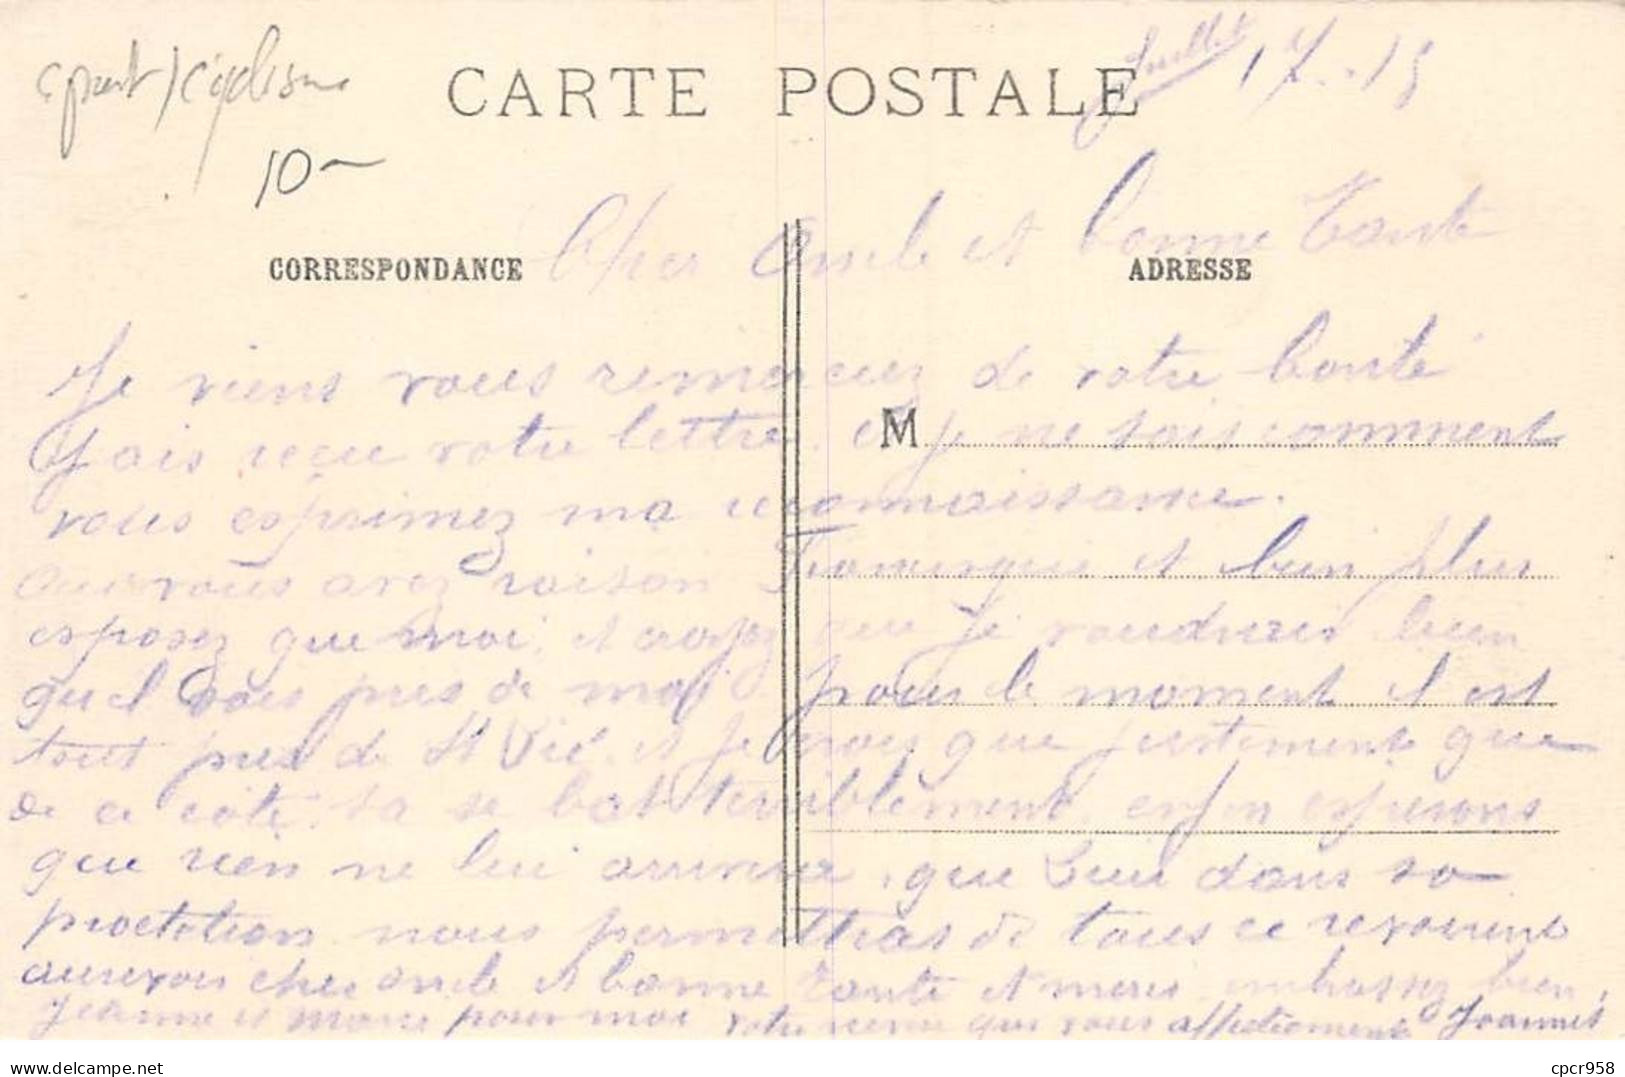 sport / cyclisme
10
CARTE POSTALE
Juillet 17-15
CORRESPONDANCE
ADRESSE
Cher Oncle et bonne Tante
Je viens vous remerciez de votre bonté
M
J'ais recue votre lettre et je ne sais comment
vous esprimez ma reconnaissance.
vous avez raison Francisque et bien plus
esposez que moi, et croyez que je voudrais bien
quel sois pres de moi pour le moment il est
tout pres de St Dié et je crois que justement que
de ce coté sa se bat terriblement enfin esperons
que rien ne lui arrivera, que Dieu dans sa
proctetion nous permettras de tous ce revoirent
aurevoir cher oncle et bonne Tante et merci embrassez bien
Jeanne et Marie pour moi votre neveu qui vous affectionnent Joannes
cpcr958